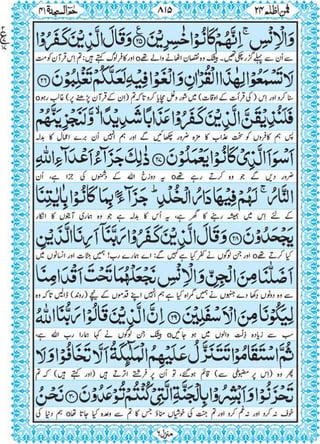 حٰمٓ السجدة ۴۱ ۸۱۵ فمن اظلم ۲۴
وَالْاِنْسِ ۚ اِنَّهُمْ كَانُوْا خٰسِرِيْنَ ﴿۲۵﴾ وَقَالَ الَّذِيْنَ كَفَرُوْا
سے ان سے پہلے گزر چکی تھیں۔ بیشک وہ نقصان اٹھانے والے تھےo اور کافر لوگ کہتے ہیں: تم اس قرآن کو مت
لَا تَسْمَعُوْا لِهٰذَا الْقُرْاٰنِ وَالْغَوْا فِيْهِ لَعَلَّكُمْ تَغْلِبُوْنَ ﴿۲۶﴾
سنا کرو اور اس (کی قرآت کے اوقات) میں شور و غل مچایا کرو تاکہ تم (ان کے قرآن پڑھنے پر) غالب رہوo
فَلَنُذِيْقَنَّ الَّذِيْنَ كَفَرُوْا عَذَابًا شَدِيْدًا ۙ وَّلَنَجْزِيَنَّهُمْ
پس ہم کافروں کو سخت عذاب کا مزہ ضرور چکھائیں گے اور ہم انہیں ان برے اعمال کا بدلہ
اَسْوَاَ الَّذِيْ كَانُوْا يَعْمَلُوْنَ ﴿۲۷﴾ ذٰلِكَ جَزَآءُ اَعْدَآءِ اللّٰهِ
ضرور دیں گے جو وہ کرتے رہے تھےo یہ دوزخ اللہ کے دشمنوں کی جزا ہے، ان
النَّارُ ۚ لَهُمْ فِيْهَا دَارُ الْخُلْدِ ؕ جَزَآءًۢ بِمَا كَانُوْا بِاٰيٰتِنَا
کے لئے اس میں ہمیشہ رہنے کا گھر ہے، یہ اُس کا بدلہ ہے جو وہ ہماری آیتوں کا انکار
يَجْحَدُوْنَ ﴿۲۸﴾ وَقَالَ الَّذِيْنَ كَفَرُوْا رَبَّنَآ اَرِنَا الَّذَيْنِ
کیا کرتے تھےo اور جن لوگوں نے کفر کیا ہے کہیں گے: اے ہمارے رب! ہمیں جنات اور انسانوں میں
اَضَلّٰنَا مِنَ الْجِنِّ وَالْاِنْسِ نَجْعَلْهُمَا تَحْتَ اَقْدَامِنَا
سے وہ دونوں دکھا دے جنہوں نے ہمیں گمراہ کیا ہے ہم انہیں اپنے قدموں کے نیچے (روند) ڈالیں تاکہ وہ
لِيَكُوْنَا مِنَ الْاَسْفَلِيْنَ ﴿۲۹﴾ اِنَّ الَّذِيْنَ قَالُوْا رَبُّنَا اللّٰهُ
سب سے زیادہ ذلت والوں میں ہو جائیںo بیشک جن لوگوں نے کہا ہمارا رب اللہ ہے،
ثُمَّ اسْتَقَامُوْا تَتَنَزَّلُ عَلَيْهِمُ الْمَلٰٓئِكَةُ اَلَّا تَخَافُوْا وَلَا
پھر وہ (اس پر مضبوطی سے) قائم ہوگئے، تو اُن پر فرشتے اترتے ہیں (اور کہتے ہیں) کہ تم
تَحْزَنُوْا وَاَبْشِرُوْا بِالْجَنَّةِ الَّتِيْ كُنْتُمْ تُوْعَدُوْنَ ﴿۳۰﴾ نَحْنُ
خوف نہ کرو اور نہ غم کرو اور تم جنت کی خوشیاں مناؤ جس کا تم سے وعدہ کیا جاتا تھاo ہم دنیا کی
منزل ۶